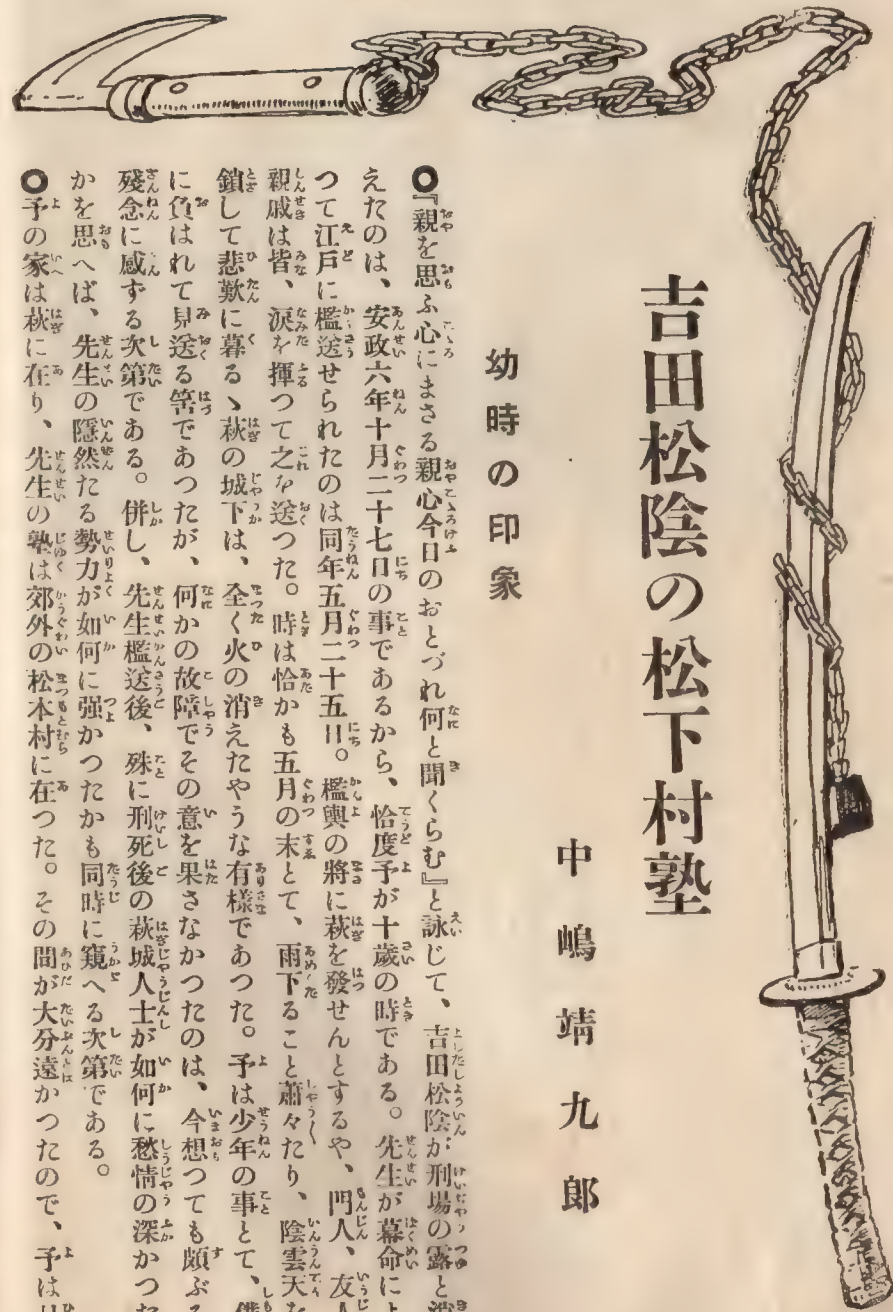 吉田松陰の松下村塾
中嶋靖九郎
幼時の印象
〇『親を思ふ心にまさる親心今日のおとづれ何と聞くらむ』と詠じて、吉田松陰が刑場の露と
えたのは、安政六年十月二十七日の事であるから、恰度予が十歳の時である。先生が幕命に
つて江戸に檻送せられたのは同年五月二十五日。檻輿の將に萩を發せんとするや、門人、友
親戚は皆、淚を揮つて之を送つた。時は恰かも五月の末とて、雨下ること蕭々たり、陰雲天
鎖して悲歎に暮るゝ萩の城下は、全く火の消えたやうな有樣であつた。予は少年の事とて、
に負はれて見送る筈であつたが、何かの故障でその意を果さなかつたのは、今想つても頗ぶ
殘念に感ずる次第である。併し、先生檻送後、殊に刑死後の萩城人士が如何に愁情の深かつ
かを思へば、先生の隱然たる勢力が如何に强かつたかも同時に窺へる次第である。
〇予の家は萩に在り、先生の塾は郊外の松本村に在つた。その間が大分遠かつたので、予は